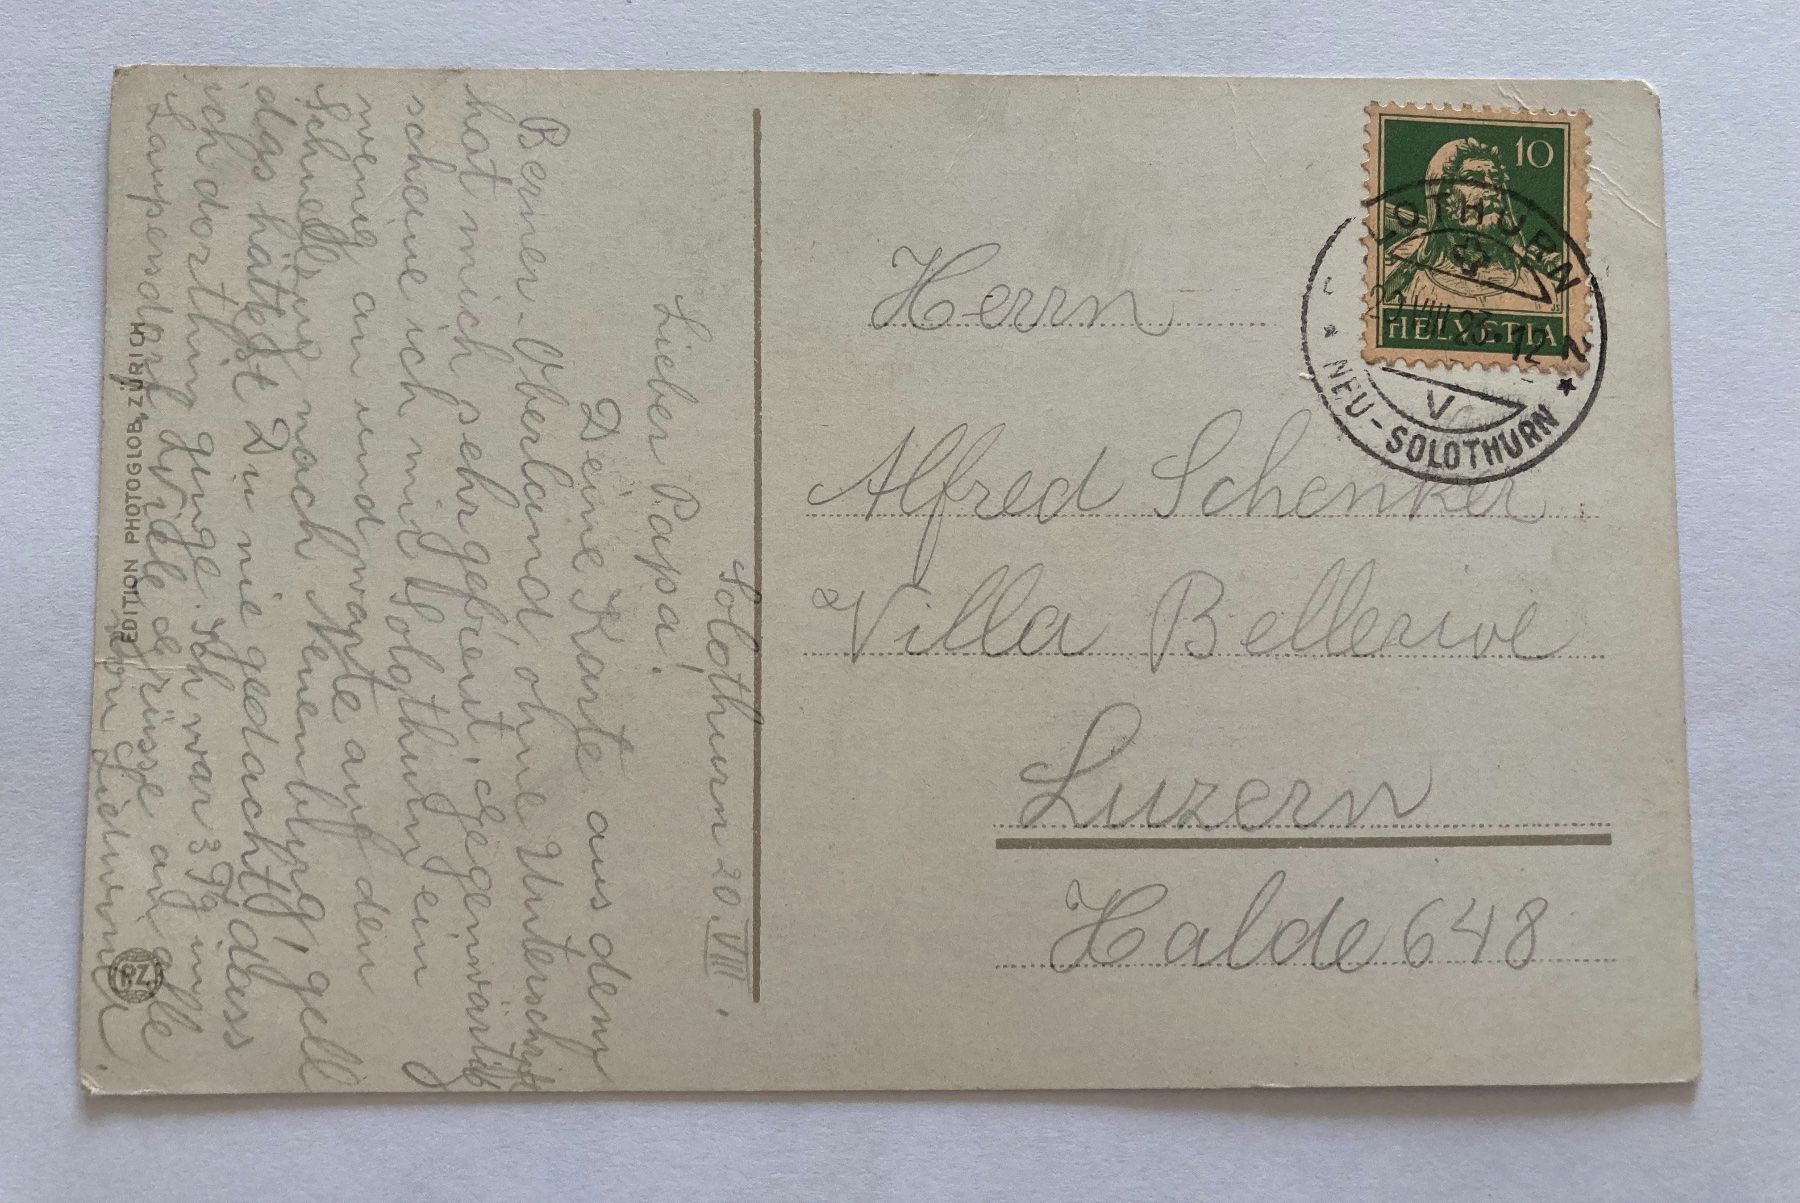 Solothurn 20. VIII.
Lieber Papa!
Deine Karte aus dem
Berner-Oberland, ohne Unterschrift
hat mich sehr gefreut. Gegenwärtig
schaue ich mir Solothurn ein
wenig an und wagte auf den
nach gell
dass hättest Du nie gedacht dass
ich dorthin ginge. Ich war 3 Tg in
Viele Grüsse an alle
von
EDITION PHOTOGLOB, ZÜRICH
P.Z.
10
HELVETIA
SOLOTHURN
VIII. 12
V
NEU-SOLOTHURN
Herrn
Alfred Schenker
Villa Bellerive
Luzern
Halde 648